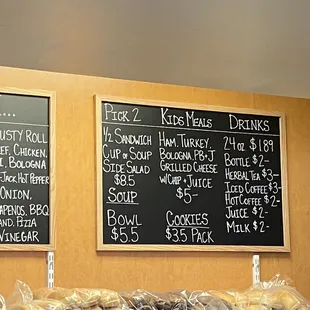 ....
USTY ROLL
EF, CHICKEN,
I, BOLOGNA
-JACK, HOT PEPPER
ONION,
APENOS, BBQ
AND PIZZA
VINEGAR
PICK 2
½ SANDWICH
CUP OF SOUP
SIDE SALAD
$8.5
SOUP
BOWL
$5.5
KIDS MEALS
HAM, TURKEY,
BOLOGNA, PB+J
GRILLED CHEESE
W/CHIP + JUICE
$5-
COOKIES
$3.5 PACK
DRINKS
24 OZ $1.89
BOTTLE $2-
HERBAL TEA $3-
ICED COFFEE $3-
HOT COFFEE $2-
JUICE $2-
MILK $2-